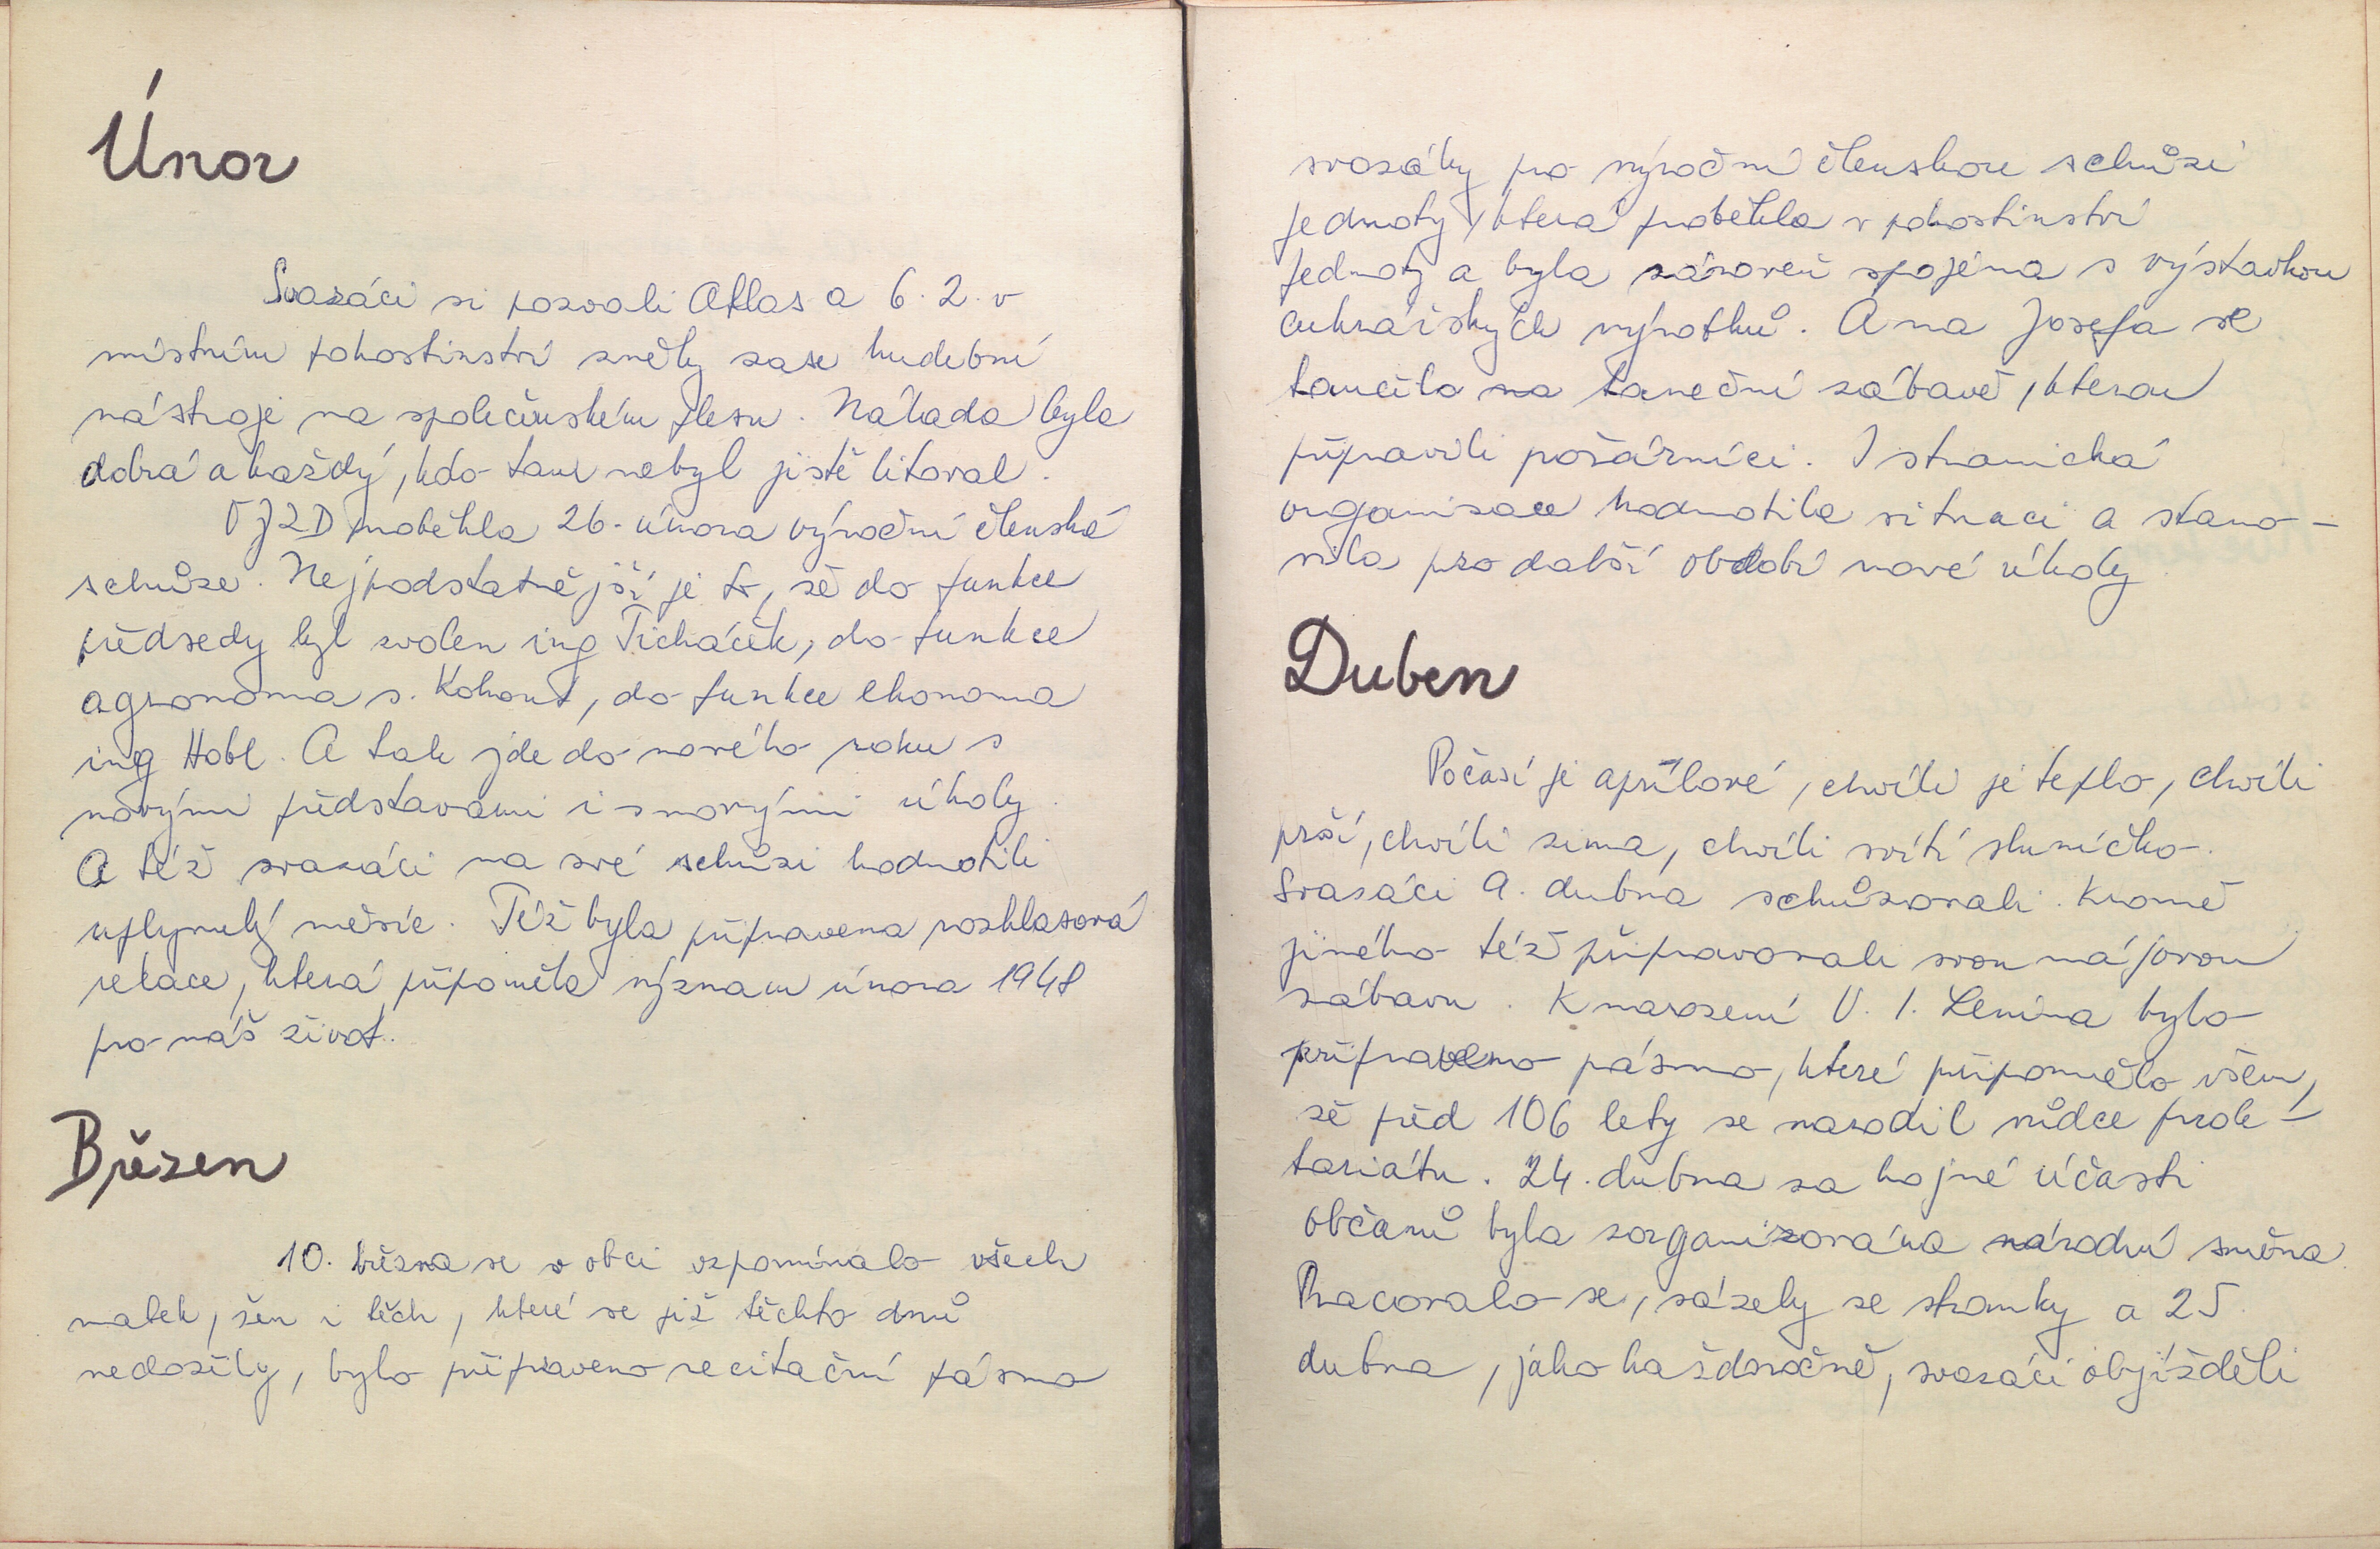 Únor
Svazáci si pozvali Atlas a 6. 2. v
místním pohostinství zněly zase hudební
nástroje na společenském plesu. Nálada byla
dobrá a každý, kdo tam nebyl jistě litoval.
V JZD proběhla 26. února výroční členská
schůze. Nejpodstatnější je to, že do funkce
předsedy byl zvolen ing Ticháček, do funkce
agronoma s. Kohout, do funkce ekonoma
ing Hobl. A tak jde do nového roku s
novými představami i s novými úkoly.
A též svazáci na své schůzi hodnotili
uplynulý měsíc. Též byla připravena rozhlasová
relace, která připoměla význam února 1948
pro náš život.
Březen
10. března se v obci vzpomínalo všech
matek, žen i těch, které se již těchto dnů
nedožily, bylo připraveno recitační pásmo
svazáky pro výroční členskou schůzi
jednoty, která proběhla v pohostinství
Jednoty a byla zároveň spojena s výstavkou
cukrářských výrobků. A na Josefa se
tančilo na taneční zábavě, kterou
připravili požárníci. I stranická
organizace hodnotila situaci a stano-
vila pro další období nové úkoly
Duben
Počasí je aprílové, chvíli je teplo, chvíli
prší, chvíli zima, chvíli svítí sluníčko.
Svazáci 9. dubna schůzovali. Kromě
jiného též připravovali svou májovou
zábavu. K narození V. I. Lenina bylo
připraveno pásmo, které připomělo všem,
že před 106 lety se narodil vůdce prole-
tariátu. 24. dubna za hojné účasti
občanů byla zorganizována národní směna.
Pracovalo se, sázely se stromky a 25
dubna, jako každoročně, svazáci objížděli